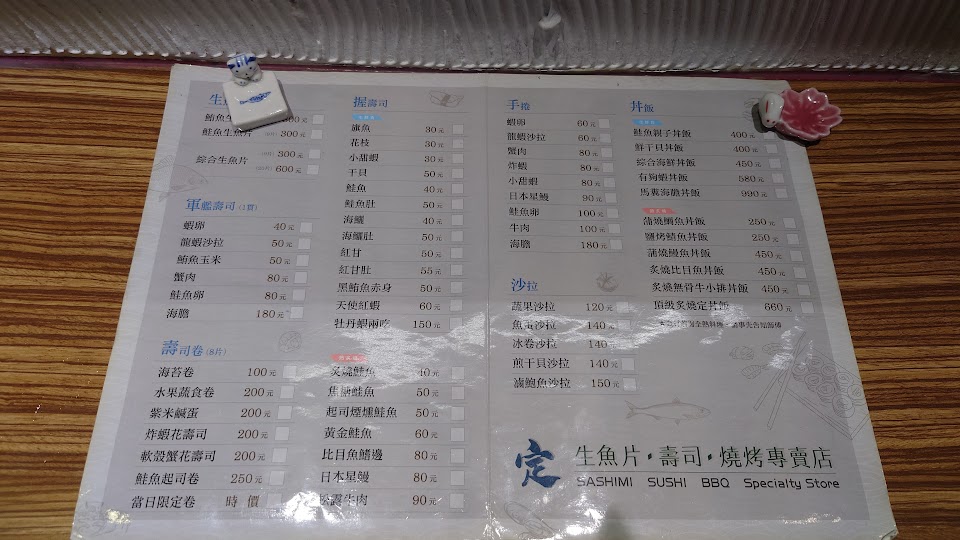 鮭魚生魚片 300元
綜合生魚片 300元
600元
軍艦壽司 (1貫)
蝦卵 40元
龍蝦沙拉 50元
鮪魚玉米 50元
蟹肉 80元
鮭魚卵 80元
海膽 180元
壽司卷 (8片)
海苔卷 100元
水果蔬食卷 200元
紫米鹹蛋 200元
炸蝦花壽司 200元
軟殼蟹花壽司 200元
鮭魚起司卷 250元
當日限定卷 時價
握壽司
旗魚 30元
花枝 30元
小甜蝦 30元
干貝 50元
鮭魚 40元
鮭魚肚 50元
海鱺 40元
海鱺肚 50元
紅甘 50元
紅甘肚 55元
黑鮪魚赤身 50元
天使紅蝦 60元
牡丹蝦兩吃 150元
炙燒鮭魚 40元
焦糖鮭魚 50元
起司煙燻鮭魚 50元
黃金鮭魚 60元
比目魚鰭邊 80元
日本星鰻 80元
牛肉 90元
手捲
蝦卵 60元
龍蝦沙拉 60元
蟹肉 80元
炸蝦 80元
小甜蝦 80元
日本星鰻 90元
鮭魚卵 100元
牛肉 100元
海膽 180元
沙拉
蔬果沙拉 120元
魚蛋沙拉 140元
冰卷沙拉 140
煎干貝沙拉 140元
滷鮑魚沙拉 150元
丼飯
鮭魚親子丼飯 400元
鮮干貝丼飯 400元
綜合海鮮丼飯 450元
有夠蝦丼飯 580元
馬糞海膽丼飯 990元
蒲燒鯛魚丼飯 250元
鹽烤鯖魚丼飯 250元
蒲燒鰻魚丼飯 450元
炙燒比目魚丼飯 450元
炙燒無骨牛小排丼飯 450元
頂級炙燒定丼飯 660元
定
生魚片·壽司·燒烤專賣店
SASHIMI SUSHI BBQ Specialty Store